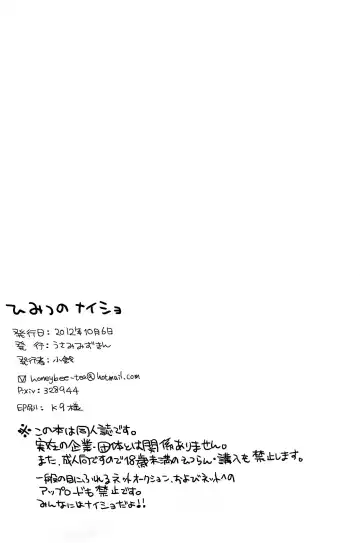 ひみつの ナイショ
発行日：2012年10月6日
発　行：うさみみずきん
発行者：小鉄
honeybee-tea@hotmail.com
Pixiv：328944
印刷：K9様
※この本は同人誌です。
実在の企業・団体とは関係ありません。
また、成人向ですので18歳未満のえつらん・購入も禁止します。
一般の目にふれるネットオークション、およびネットへの
アップロードも禁止です。
みんなにはナイショだよ!!